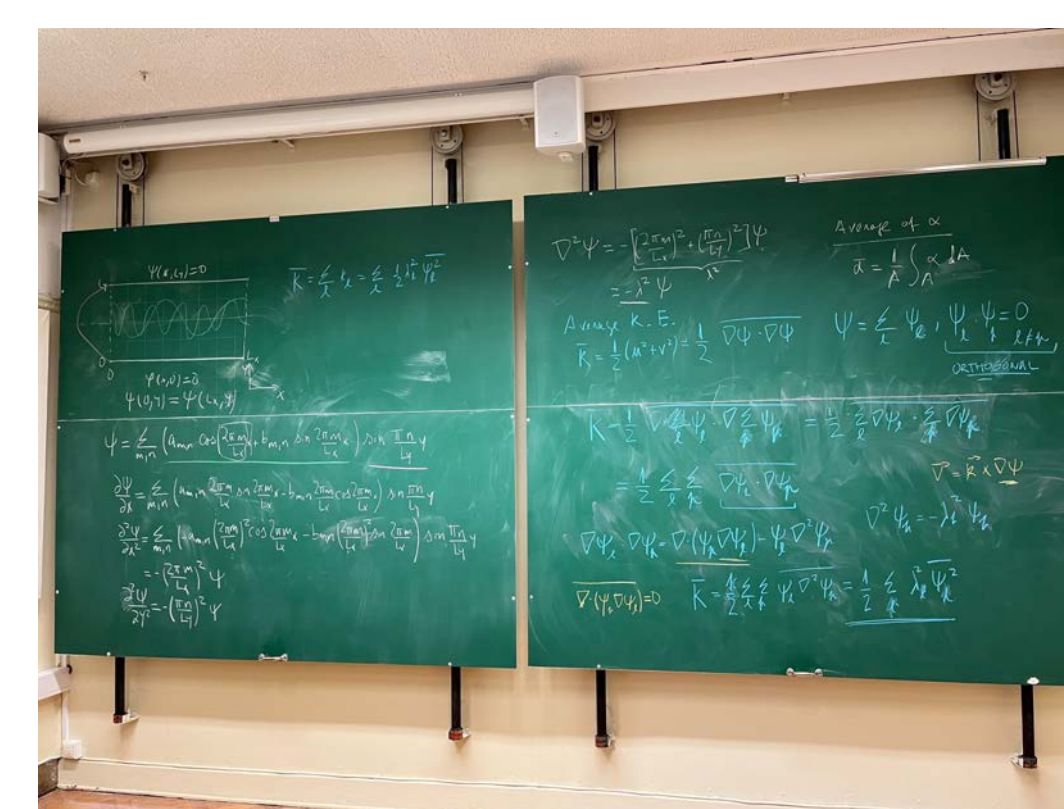 Ψ(x,Ly)=0
Ly
0
0
Lx
y
x
Ψ(x,0)=0
Ψ(0,y)=Ψ(Lx,y)
K̅ = Σ_l K_l = Σ_l 1/2 λ_l² \overline{Ψ_l²}
Ψ = Σ_{m,n} (a_{m,n} cos 2πm/Lx x + b_{m,n} sin 2πm/Lx x) sin πn/Ly y
∂Ψ/∂x = Σ_{m,n} (a_{m,n} 2πm/Lx sin 2πm/Lx x - b_{m,n} 2πm/Lx cos 2πm/Lx x) sin πn/Ly y
∂²Ψ/∂x² = Σ_{m,n} (-a_{m,n} (2πm/Lx)² cos 2πm/Lx x - b_{m,n} (2πm/Lx)² sin 2πm/Lx x) sin πn/Ly y
= -(2πm/Lx)² Ψ
∂²Ψ/∂y² = -(πn/Ly)² Ψ
∇²Ψ = -[(2πm/Lx)² + (πn/Ly)²]Ψ
λ²
= -λ² Ψ
Average of α
α̅ = 1/A ∫_A α dA
Average K.E.
K̅ = 1/2 (u²+v²) = 1/2 \overline{∇Ψ·∇Ψ}
Ψ = Σ_l Ψ_l , \overline{Ψ_l·Ψ_k} = 0
l≠k
ORTHOGONAL
K̅ = 1/2 \overline{∇Σ_l Ψ_l · ∇Σ_k Ψ_k} = 1/2 \overline{Σ_l ∇Ψ_l · Σ_k ∇Ψ_k}
= 1/2 Σ_l Σ_k \overline{∇Ψ_l · ∇Ψ_k}
v⃗ = k⃗ × ∇Ψ
∇Ψ_l · ∇Ψ_k = ∇·(Ψ_k ∇Ψ_l) - Ψ_l ∇²Ψ_k
∇²Ψ_k = -λ_k² Ψ_k
\overline{∇·(Ψ_l ∇Ψ_k)} = 0
K̅ = 1/2 Σ_l Σ_k \overline{Ψ_l ∇²Ψ_k} = 1/2 Σ_k λ_k² \overline{Ψ_k²}